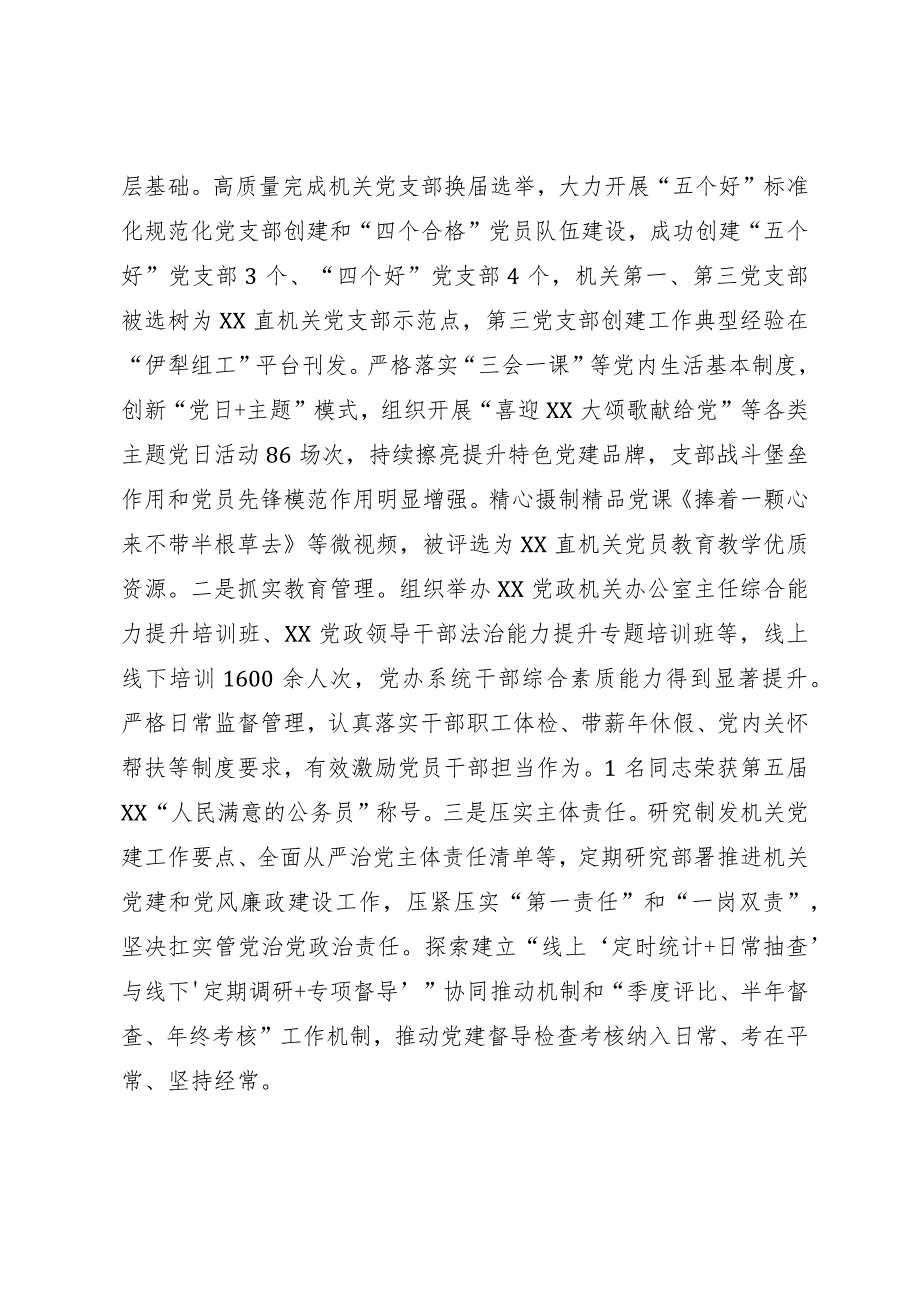 层基础。高质量完成机关党支部换届选举，大力开展“五个好”标准
化规范化党支部创建和“四个合格”党员队伍建设，成功创建“五个
好”党支部3个、“四个好”党支部4个，机关第一、第三党支部
被选树为XX直机关党支部示范点，第三党支部创建工作典型经验在
“伊犁组工”平台刊发。严格落实“三会一课”等党内生活基本制度，
创新“党日+主题”模式，组织开展“喜迎XX大颂歌献给党”等各类
主题党日活动86场次，持续擦亮提升特色党建品牌，支部战斗堡垒
作用和党员先锋模范作用明显增强。精心摄制精品党课《捧着一颗心
来不带半根草去》等微视频，被评选为XX直机关党员教育教学优质
资源。二是抓实教育管理。组织举办XX党政机关办公室主任综合能
力提升培训班、XX党政领导干部法治能力提升专题培训班等，线上
线下培训1600余人次，党办系统干部综合素质能力得到显著提升。
严格日常监督管理，认真落实干部职工体检、带薪年休假、党内关怀
帮扶等制度要求，有效激励党员干部担当作为。1名同志荣获第五届
XX“人民满意的公务员”称号。三是压实主体责任。研究制发机关党
建工作要点、全面从严治党主体责任清单等，定期研究部署推进机关
党建和党风廉政建设工作，压紧压实“第一责任”和“一岗双责”，
坚决扛实管党治党政治责任。探索建立“线上‘定时统计+日常抽查’
与线下'定期调研+专项督导’”协同推动机制和“季度评比、半年督
查、年终考核”工作机制，推动党建督导检查考核纳入日常、考在平
常、坚持经常。